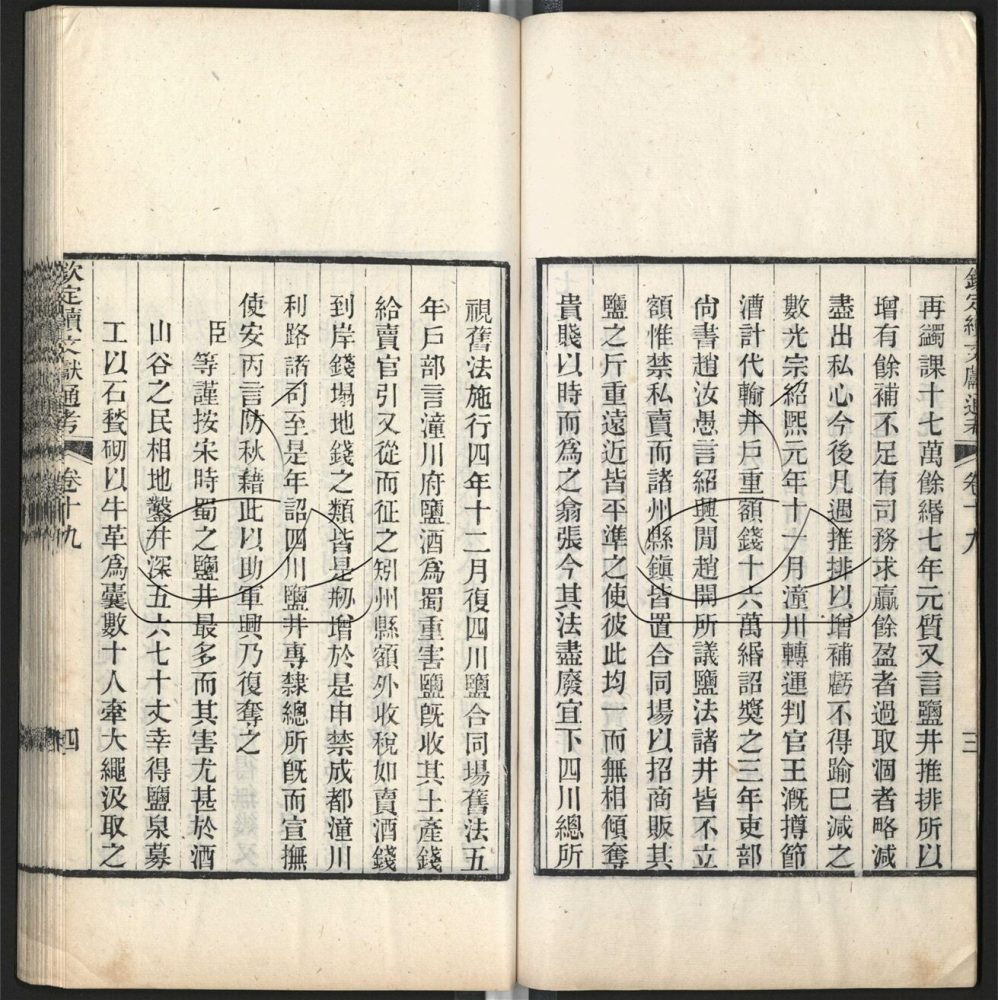 欽定續文獻通考 卷十九 三
再蠲課十七萬餘緡七年元質又言鹽井推排所以
增有餘補不足有司務求贏餘盈者過取涸者略減
盡出私心今後凡遇推排以增補虧不得踰巳減之
數光宗紹熙元年十一月潼川轉運判官王溉撙節
漕計代輸井戶重額錢十六萬緡詔獎之三年吏部
尙書趙汝愚言紹興閒趙開所議鹽法諸井皆不立
額惟禁私賣而諸州縣鎭皆置合同場以招商販其
鹽之斤重遠近皆平準之使彼此均一而無相傾奪
貴賤以時而爲之翕張今其法盡廢宜下四川總所
視舊法施行四年十二月復四川鹽合同場舊法五
年戶部言潼川府鹽酒爲蜀重害鹽旣收其土產錢
給賣官引又從而征之矧州縣額外收稅如賣酒錢
到岸錢塲地錢之類皆是剏增於是申禁成都潼川
利路諸司至是年詔四川鹽井專隸總所旣而宣撫
使安丙言防秋藉此以助軍興乃復奪之
臣等謹按宋時蜀之鹽井最多而其害尤甚於酒
山谷之民相地鑿井深五六七十丈幸得鹽泉募
工以石甃砌以牛革爲囊數十人牽大繩汲取之
欽定續文獻通考 卷十九 四